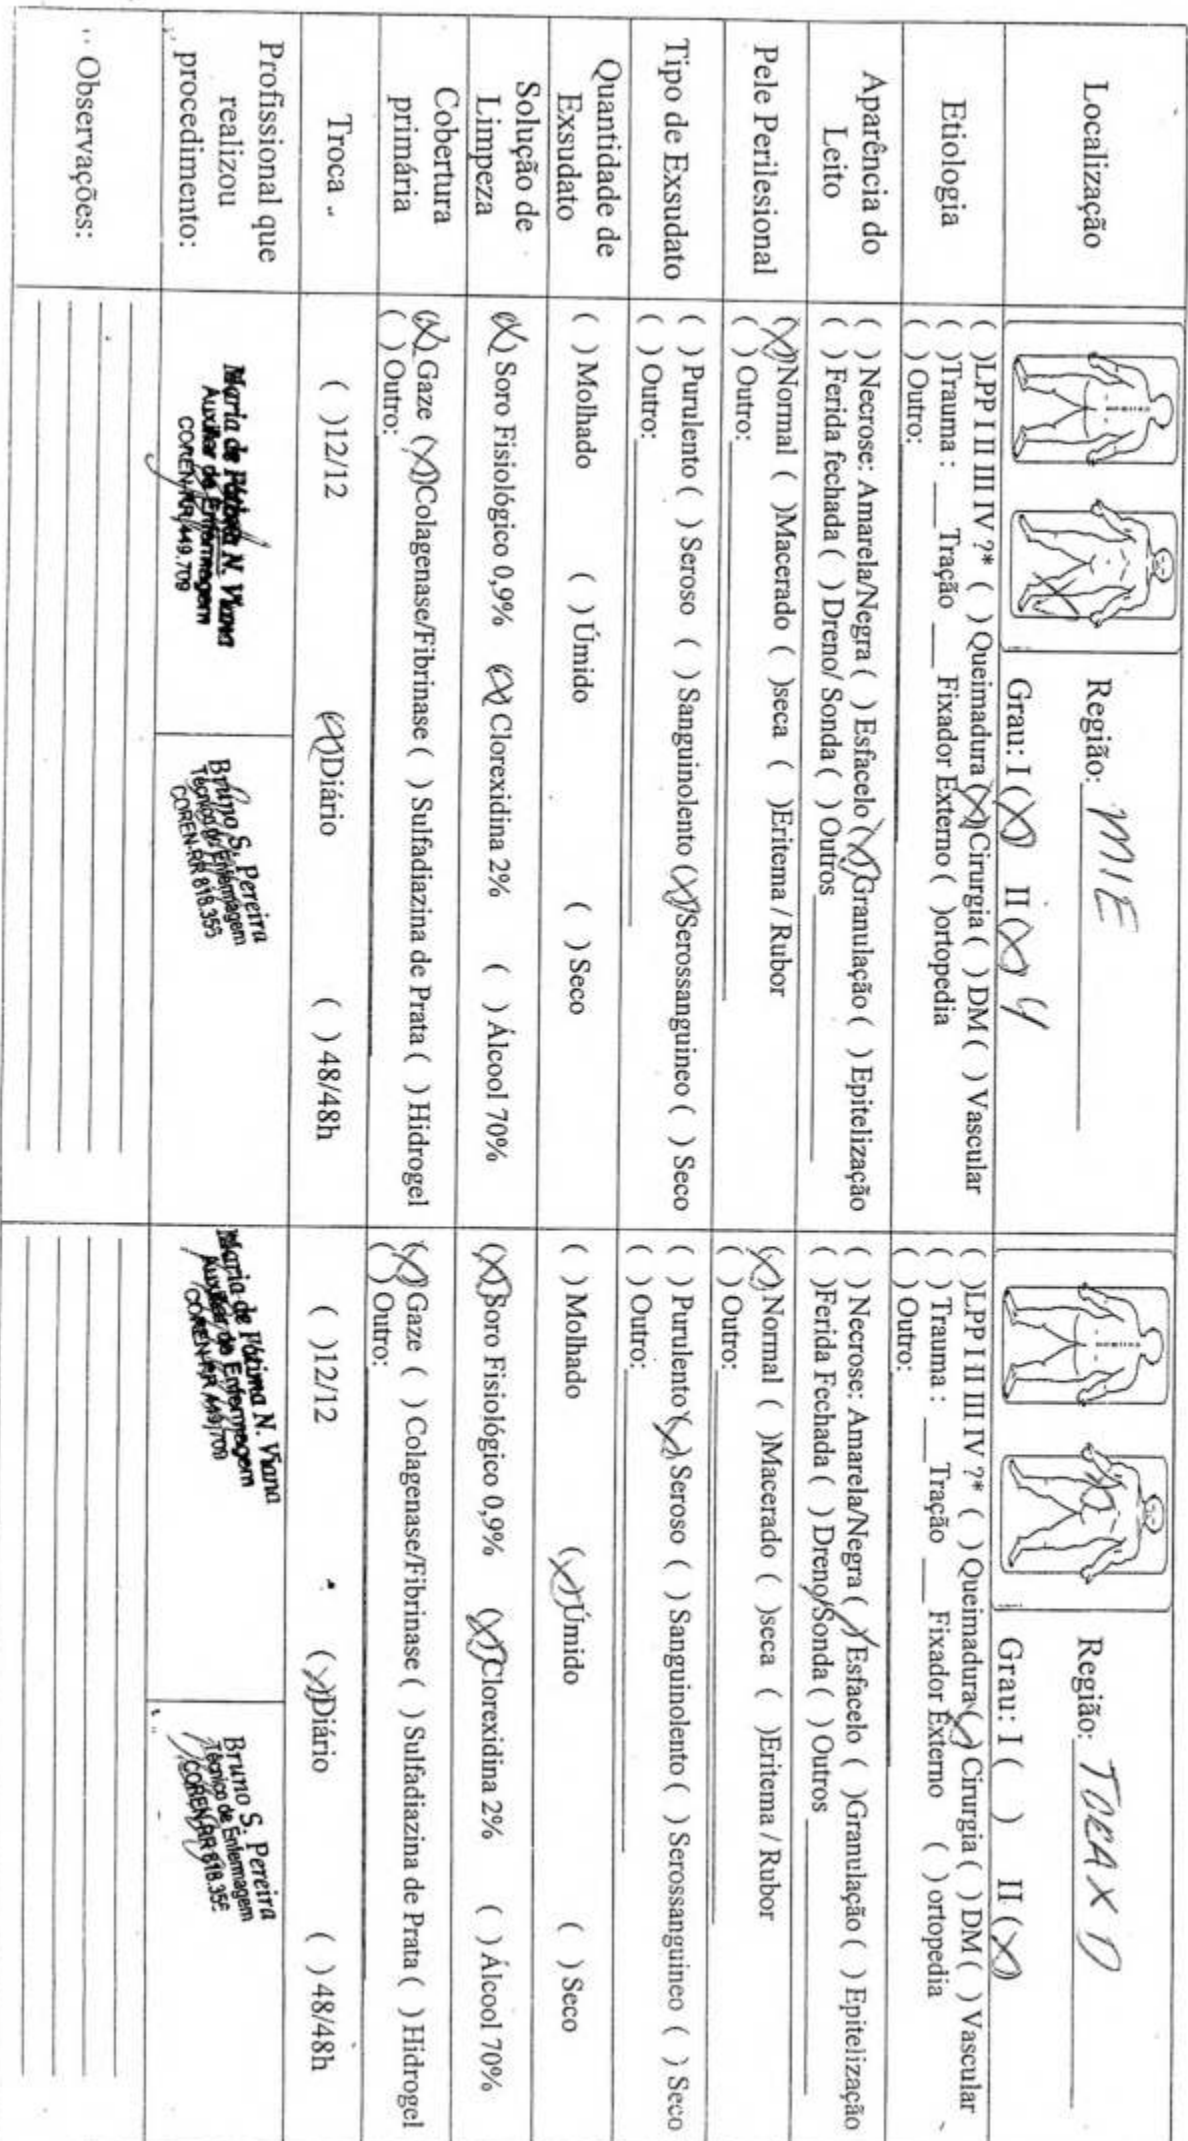 Localização
Região: MIE
Grau: I (X) II (X) 4
Região: TORAX D
Grau: I ( ) II (X)
Etiologia
( )LPP I II III IV ?* ( ) Queimadura (X)Cirurgia ( ) DM ( ) Vascular
( )Trauma : ___ Tração ___ Fixador Externo ( )ortopedia
( ) Outro:
( )LPP I II III IV ?* ( ) Queimadura (X) Cirurgia ( ) DM ( ) Vascular
( ) Trauma : ___ Tração ___ Fixador Externo ( ) ortopedia
( ) Outro:
Aparência do
Leito
( ) Necrose: Amarela/Negra ( ) Esfacelo (X)Granulação ( ) Epitelização
( ) Ferida fechada ( ) Dreno/ Sonda ( ) Outros
( ) Necrose: Amarela/Negra (X Esfacelo ( )Granulação ( ) Epitelização
( )Ferida Fechada ( ) Dreno/Sonda ( ) Outros
Pele Perilesional
(X)Normal ( )Macerado ( )seca ( )Eritema / Rubor
( ) Outro:
(X)Normal ( )Macerado ( )seca ( )Eritema / Rubor
( ) Outro:
Tipo de Exsudato
( ) Purulento ( ) Seroso ( ) Sanguinolento (X)Serossanguineo ( ) Seco
( ) Outro:
( ) Purulento (X) Seroso ( ) Sanguinolento ( ) Serossanguineo ( ) Seco
( ) Outro:
Quantidade de
Exsudato
( ) Molhado ( ) Úmido ( ) Seco
( ) Molhado (X)Úmido ( ) Seco
Solução de
Limpeza
(X) Soro Fisiológico 0,9% (X) Clorexidina 2% ( ) Álcool 70%
(X)Soro Fisiológico 0,9% (X)Clorexidina 2% ( ) Álcool 70%
Cobertura
primária
(X)Gaze (X)Colagenase/Fibrinase ( ) Sulfadiazina de Prata ( ) Hidrogel
( ) Outro:
(X)Gaze ( ) Colagenase/Fibrinase ( ) Sulfadiazina de Prata ( ) Hidrogel
( ) Outro:
Troca
( )12/12 (X)Diário ( ) 48/48h
( )12/12 (X)Diário ( ) 48/48h
Profissional que
realizou
procedimento:
Maria de Fátima N. Viana
Auxiliar de Enfermagem
COREN-RR 449.709
Bruno S. Pereira
Técnico de Enfermagem
COREN-RR 618.355
Maria de Fátima N. Viana
Auxiliar de Enfermagem
COREN-RR 449.709
Bruno S. Pereira
Técnico de Enfermagem
COREN-RR 618.355
Observações: